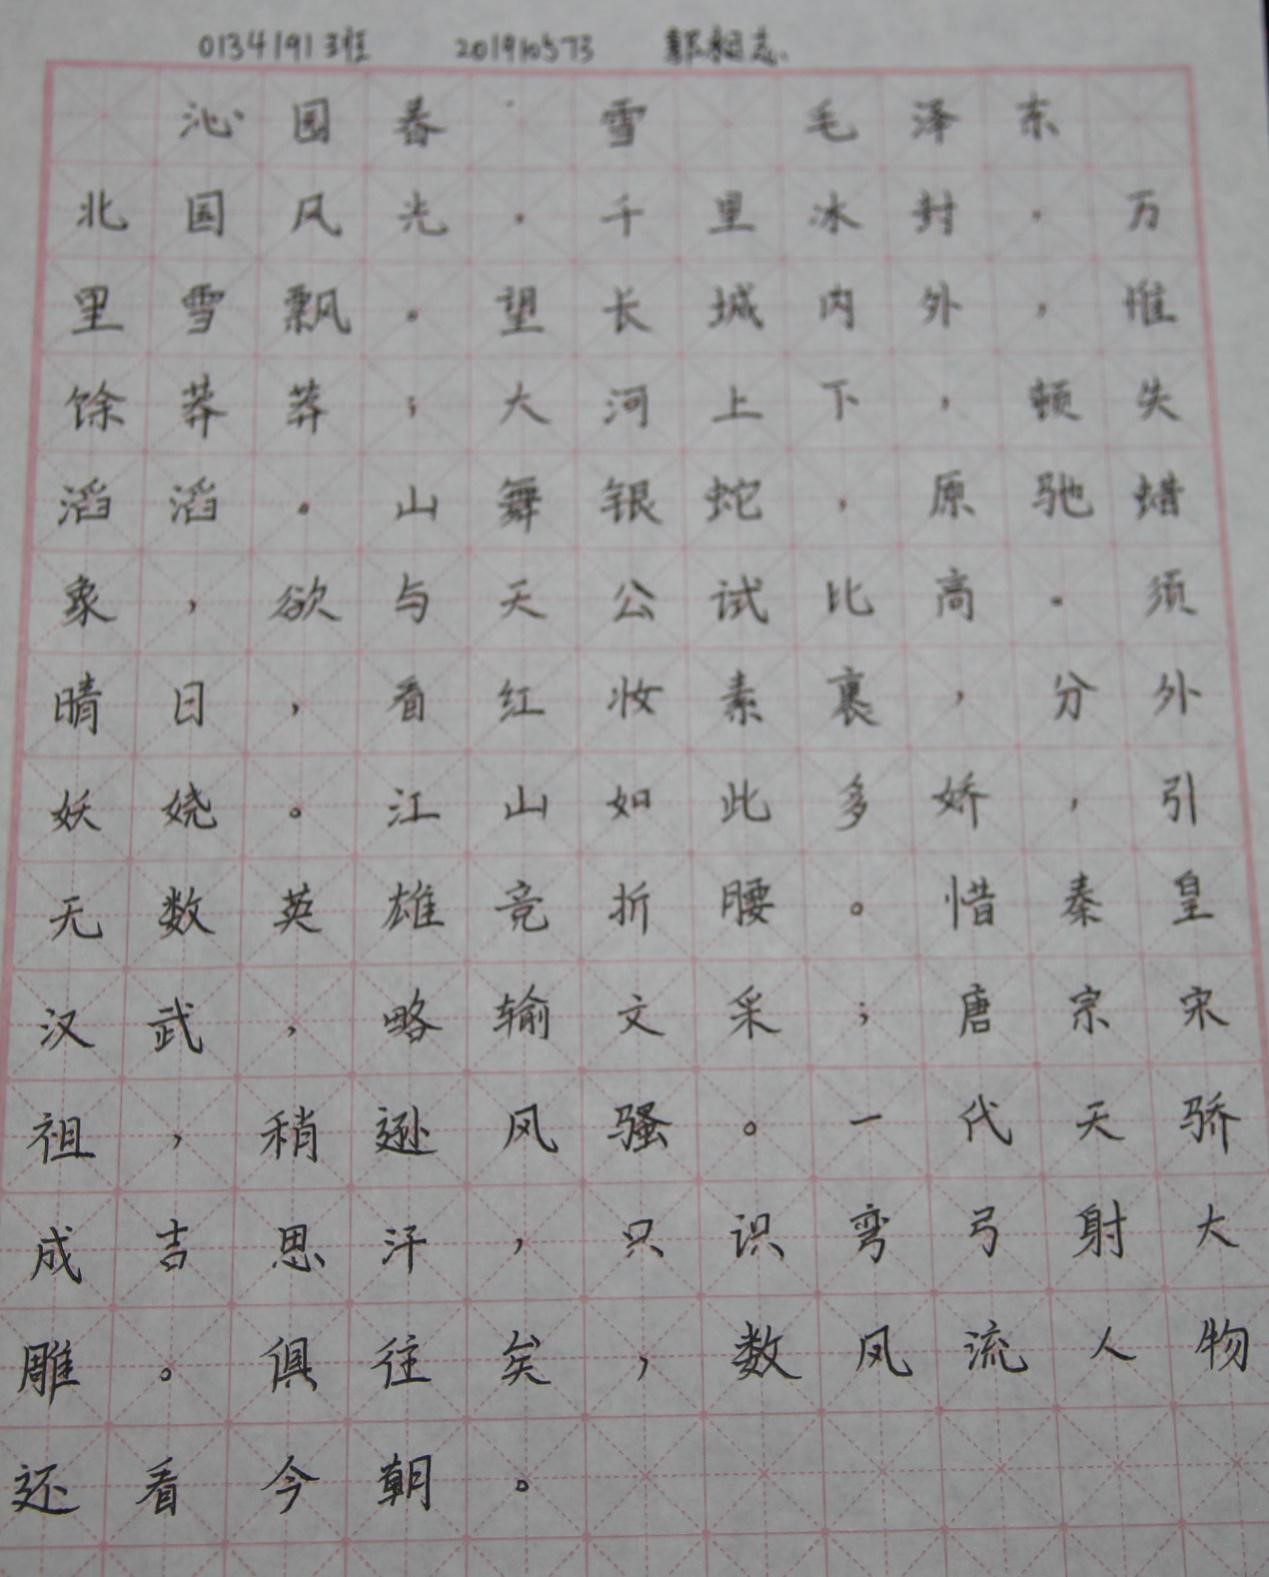 01341913班 201910573
沁园春·雪 毛泽东
北国风光，千里冰封，万
里雪飘。望长城内外，惟
馀莽莽；大河上下，顿失
滔滔。山舞银蛇，原驰蜡
象，欲与天公试比高。须
晴日，看红妆素裹，分外
妖娆。江山如此多娇，引
无数英雄竞折腰。惜秦皇
汉武，略输文采；唐宗宋
祖，稍逊风骚。一代天骄
成吉思汗，只识弯弓射大
雕。俱往矣，数风流人物
还看今朝。